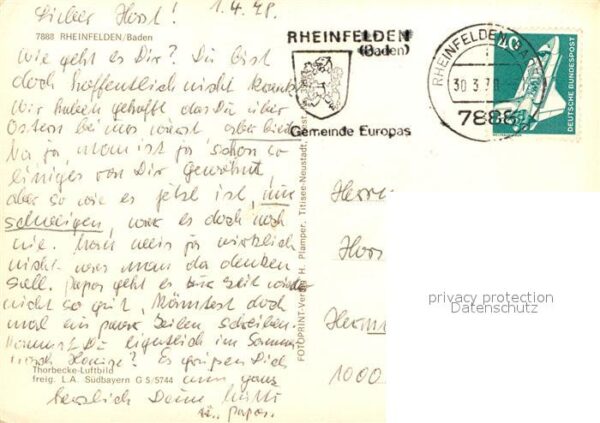 Lieber Horst! 1.4.78.
7888 RHEINFELDEN/Baden
Wie geht es Dir? Du bist
doch hoffentlich nicht krank
Wir haben gehofft das Du über
Ostern bei uns
Na ja, man ist ja schon so
einiges von Dir gewöhnt,
aber so wie es jetzt ist, nur
schweigen, war es doch noch
nie. Man weis ja wirklich
nicht was man da denken
soll. Papas geht es zur Zeit wieder
nicht so gut, Könntest doch
mal ein paar Zeilen, schreiben.
Kommst Du eigentlich im Sommer
nach Hause? Es grüßen Dich
Thorbecke-Luftbild
freig. L.A. Südbayern G 5/5744
nun ganz
herzlich Deine Mutti
u. papas.
FOTOPRINT-Verlag H. Plamper, Titisee-Neustadt,
RHEINFELDEN
(Baden)
Gemeinde Europas
RHEINFELDEN, BADEN
30.3.78
7888
40
DEUTSCHE BUNDESPOST
Herrn
Hors
Herm
1000
privacy protection
Datenschutz